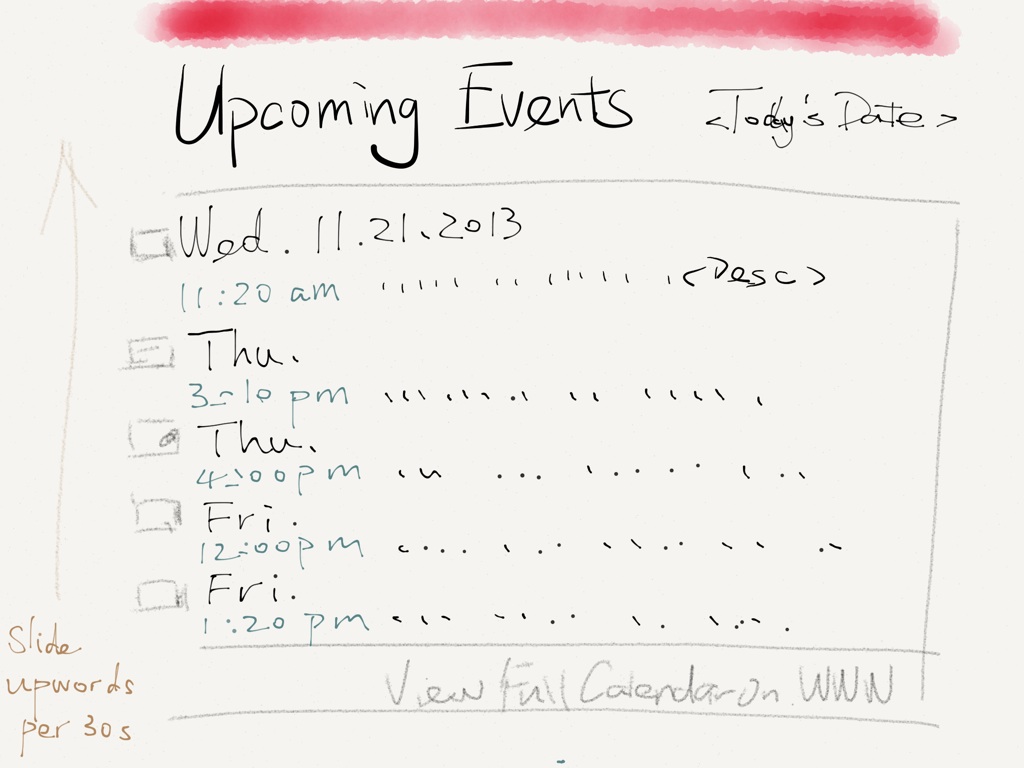 Upcoming Events <Today's Date>
Wed. 11.21.2013
11:20 am <Desc>
Thu.
3:10 pm
Thu.
4:00pm
Fri.
12:00pm
Fri.
1:20 pm
View Full Calendar on WWW
Slide
upwords
per 30s